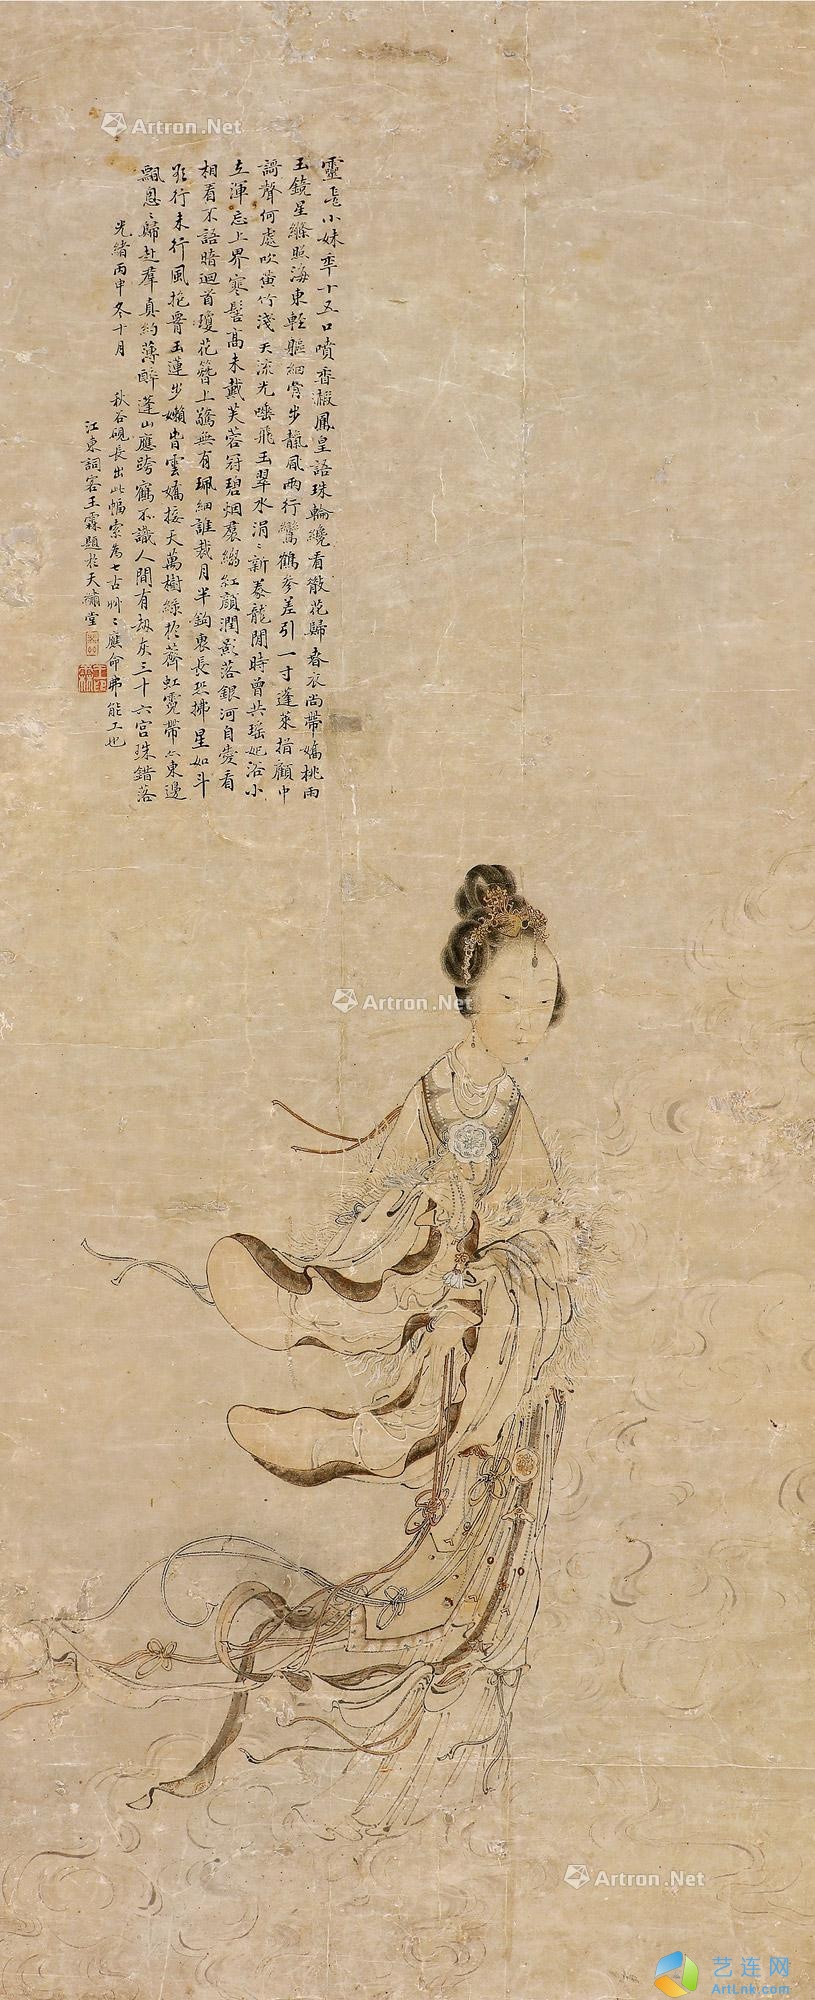 靈뜰小妹年十五口噴香凝鳳皇語珠輪纔看散花歸春衣尚帶嬌桃雨
玉鏡星綠照海東輕軀細骨步靚風兩行鸞鶴參差引一寸蓬萊指顧中
謌聲何處吹黃竹淺天流光唾飛玉翠水涓〻新養龍閒時曾共瑤妃浴小
立渾忘上界寒髻高未戴芙蓉冠碧烟裙縐紅顏潤影落銀河自愛看
相看不語暗迴首瓊花簪上驚無有珮細誰裁月半鉤裏長恐拂星如斗
欲行未行風拖骨玉蓮步嬾皆雲嬌接天萬樹絲於薺虹霓帶上東邊
飄恩〻歸赴羣真約薄醉蓬山應跨鶴不識人間有劫灰三十六宮珠錯落
光緒丙申冬十月
秋谷硯長出此幅索為七古艸〻應命弗能工也
江東詞客王霖題於天繡堂
Artron.Net
Artron.Net
Artron.Net
艺连网
ArtLnk.com